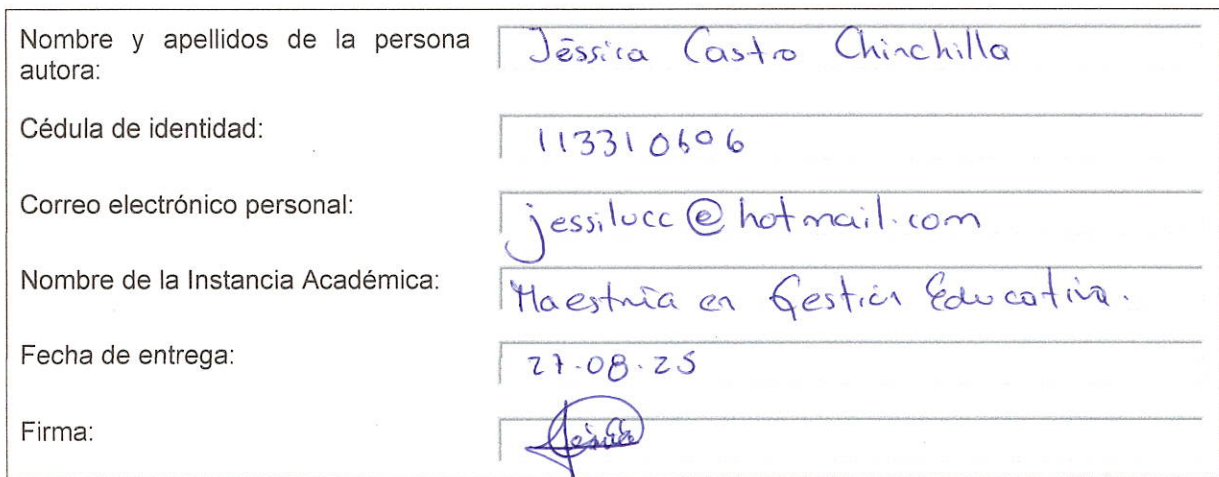 Nombre y apellidos de la persona
autora:
Jéssica Castro Chinchilla
Cédula de identidad:
113310606
Correo electrónico personal:
jessilucc@hotmail.com
Nombre de la Instancia Académica:
Maestría en Gestión Educativa.
Fecha de entrega:
27.08.25
Firma: